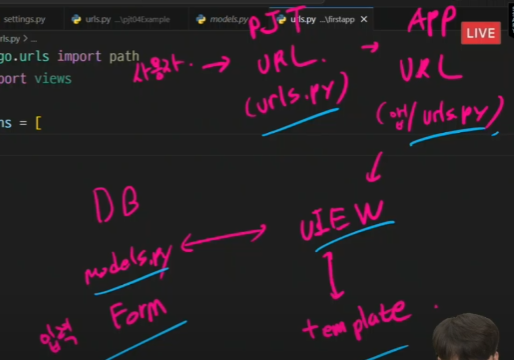 settings.py
urls.py ...\pjt04Example
models.py
urls.py ...\firstapp
LIVE
urls.py > ...
go.urls import path
port views
ns = [
사용자.
PJT
URL.
(urls.py)
APP
URL
(앱/urls.py)
VIEW
DB
models.py
Form
입력
template